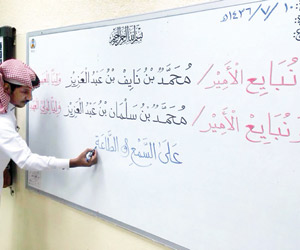 بسم الله الرحمن الرحيم
١٤٣٦/٧/١٠هـ
نبايع الأمير/ محمد بن نايف بن عبدالعزيز وليا
نبايع الأمير/ محمد بن سلمان بن عبدالعزيز وليا
على السمع و الطاعة